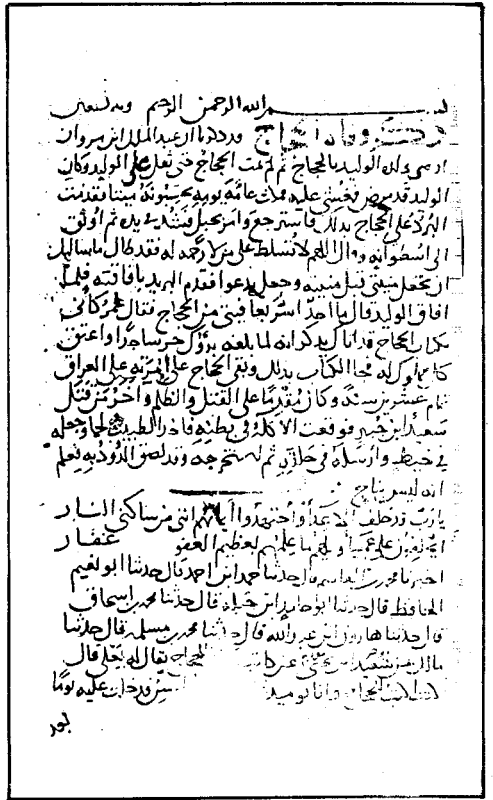 بسم الله الرحمن الرحيم وبه نستعين
ذكر وفاة الحجاج وروى ان عبد الملك ابن مروان
اوصى ولده الوليد بالحجاج ثم لم يمت الحجاج حتى ثقل على الوليد وكان
الوليد قد مرض فغشي عليه فمكث عامة يومه يحسبونه ميتا فقدمت
البرد على الحجاج بذلك فاسترجع وامر بحبل فشد في يده ثم اوثق
الى اسطوانة وقال اللهم لا تسلط علي من لا رحمة له فقد طال ما سالتك
ان تجعل منيتي قبل منيته وجعل يدعوا فقدم البريد بافاقته فلما
افاق الوليد قال ما احد اسر بعافيتي من الحجاج فقال عمر كاني
بكتاب الحجاج قد اتاك يذكر انه لما بلغه برؤك خر ساجدا واعتق
كل مملوك له فجا الكتاب بذلك وبقي الحجاج على امرته على العراق
تمام عشرين سنة وكان مقدما على القتل والظلم واخر من قتل
سعيد ابن جبير فوقعت الاكلة في بطنه فاخذ الطبيب لحما وجعله
في خيط وارسله في حلقه ثم استخرجه وقد لصق الدود به فعلم
انه ليس بناج
يا رب قد حلف الاعدآ واجتهدوا ايمانهم انني من ساكني النار
ايحلفون على عميا ويلهم ما علمهم بعظيم العفو غفار
اخبرنا محمد بن ابي القاسم قال حدثنا حمد ابن احمد قال حدثنا ابو نعيم
الحافظ قال حدثنا ابو حامد ابن جبلة قال حدثنا محمد بن اسحاق
قال حدثنا هارون ابن عبد الله قال حدثنا محمد بن مسلمة قال حدثنا
مالك بن سعيد ابن يحيى عن كاتب الحجاج يقال له يعلى قال
كنت اكتب للحجاج وانا يوميذ السن فدخلت عليه يوما
بعد